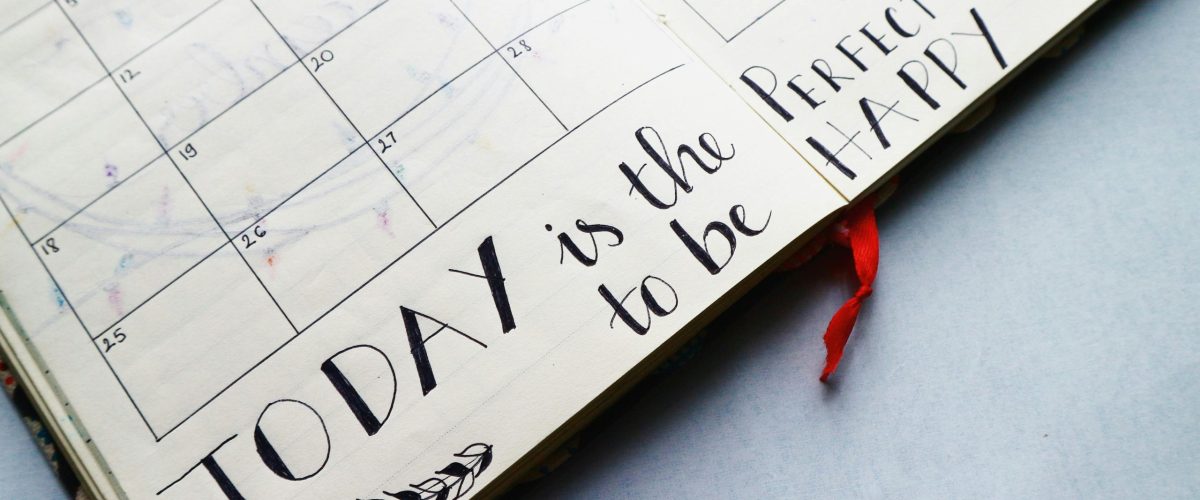 12
18 19 20
25 26 27 28
TODAY is the PERFECT
to be HAPPY